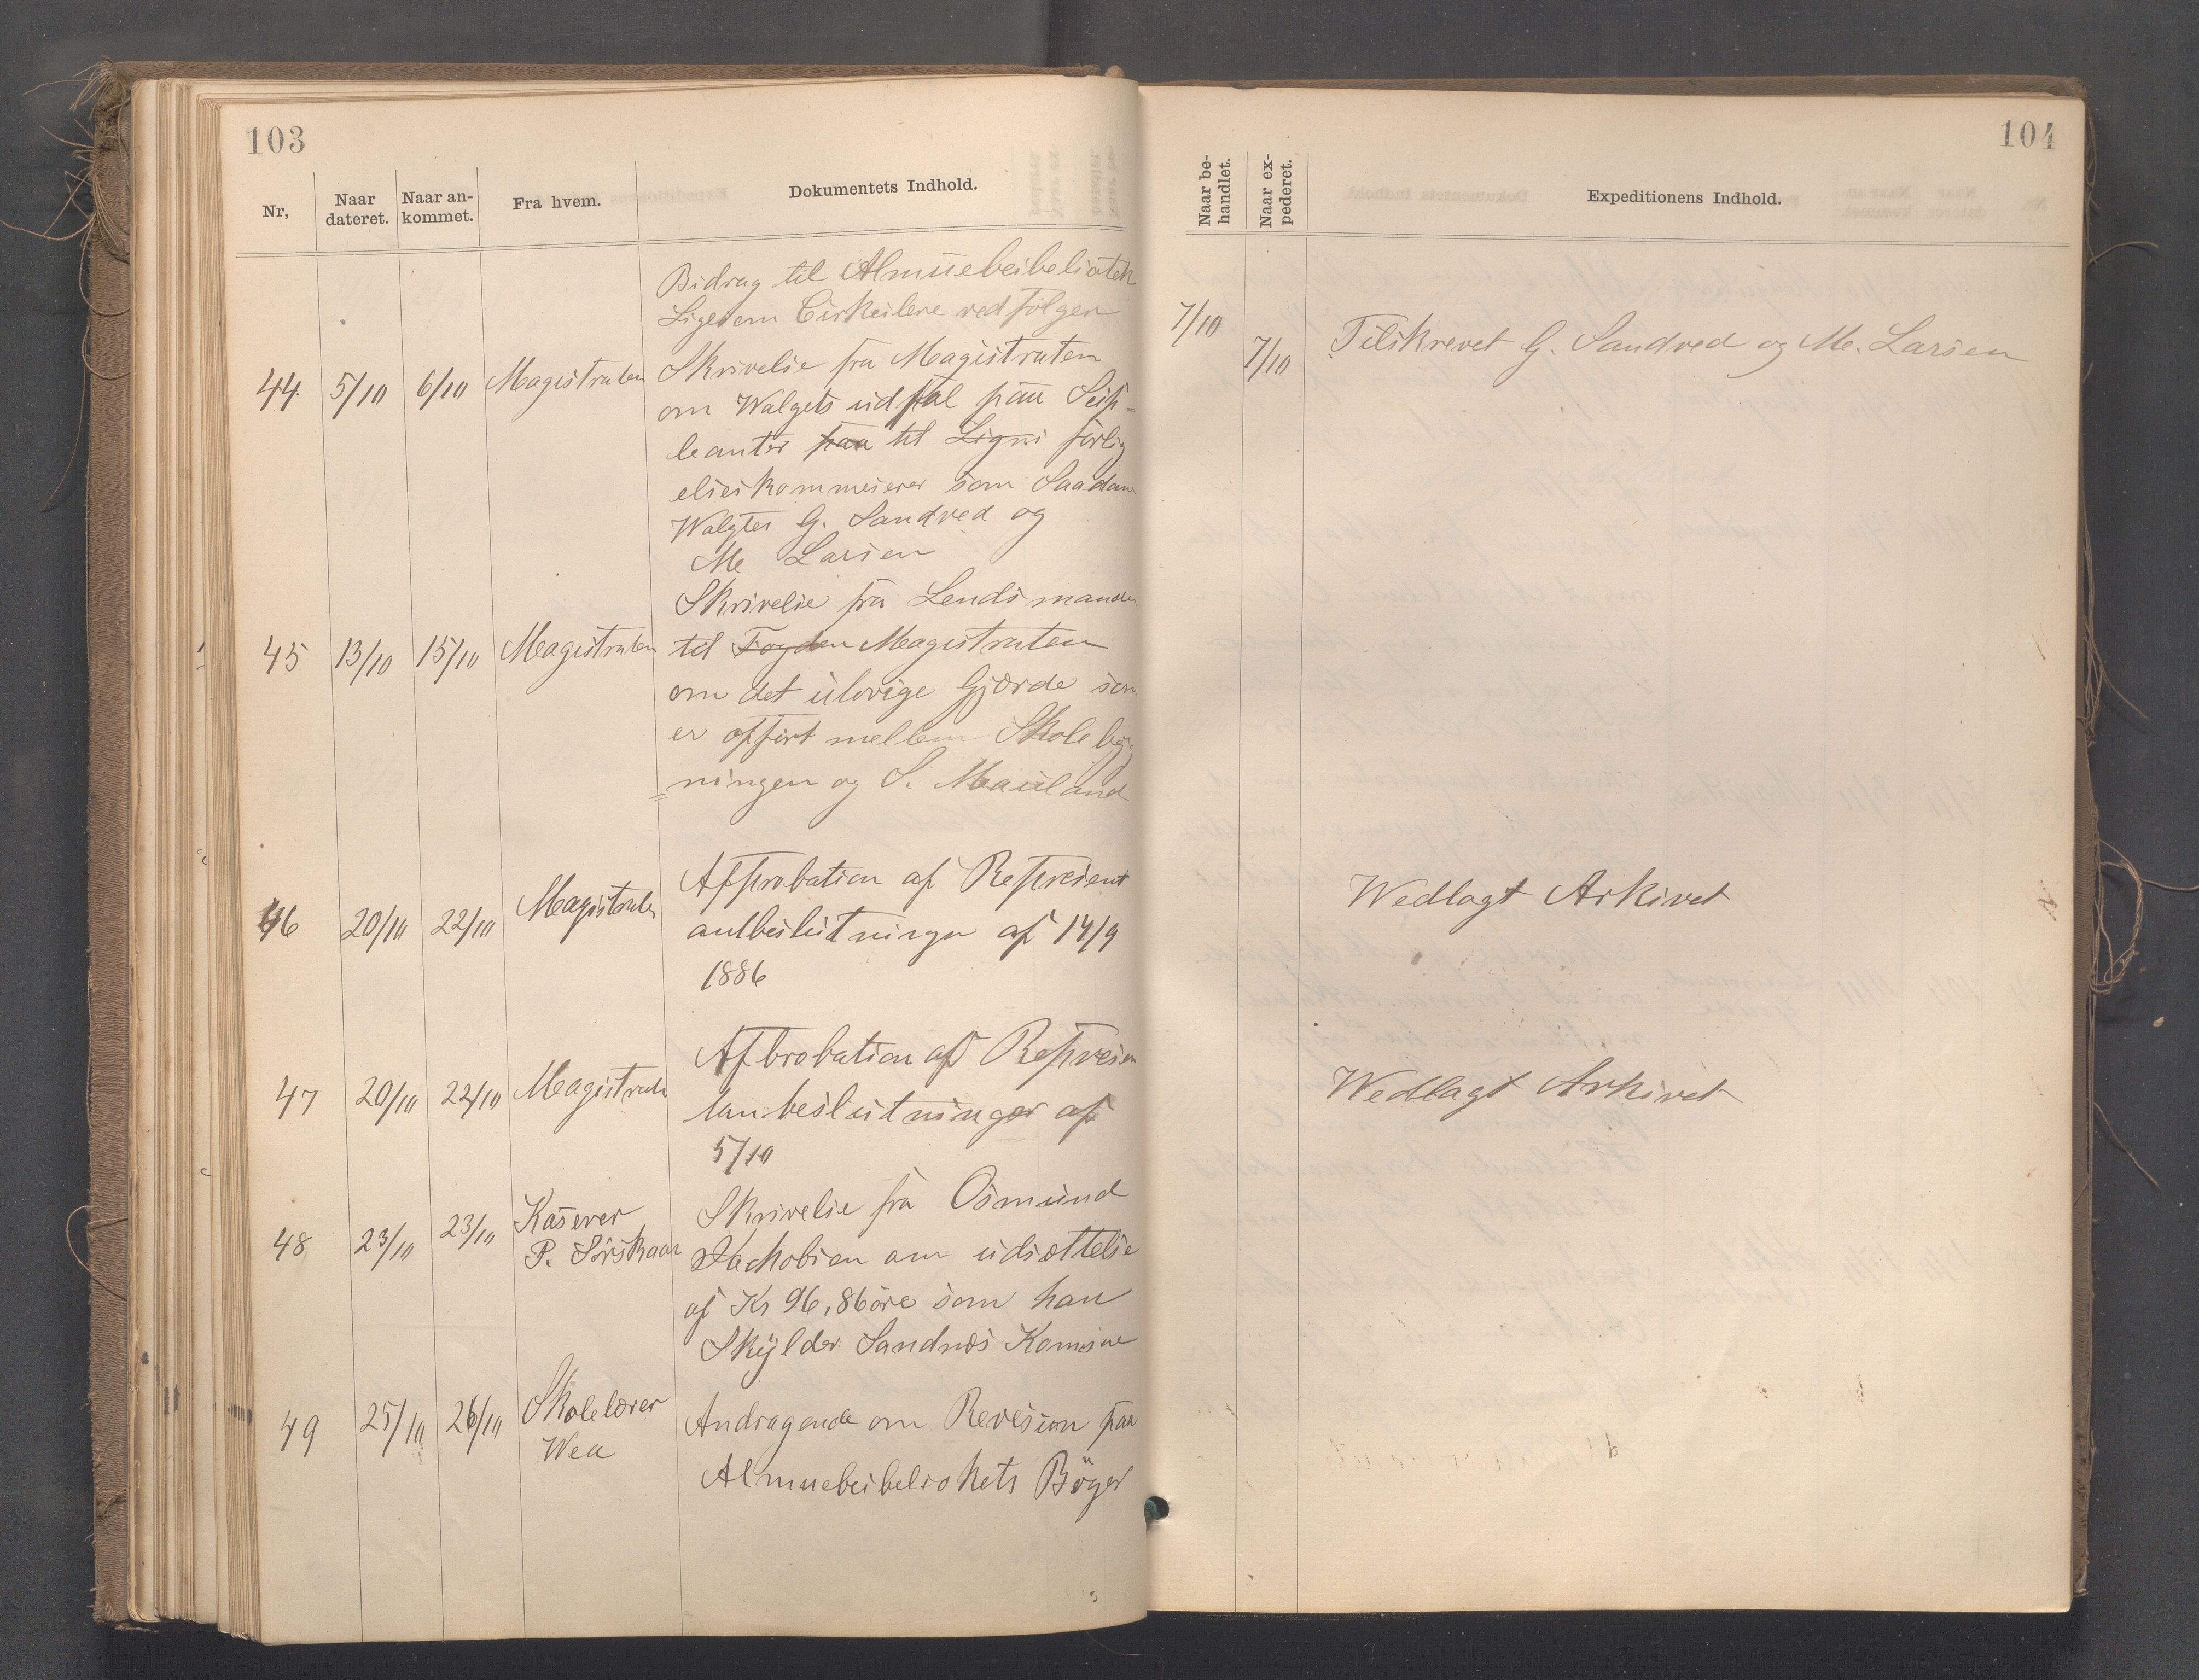 103
Nr,
Naar dateret.
Naar ankommet.
Fra hvem.
Dokumentets Indhold.
Bidrag til Almuebeibeliotek
Ligesom Cirkulere vedfölger
44 5/10 6/10 Magistraten
Skrivelse fra Magistraten
om Walgets udfal paa Sup-
leanter paa til Ligni förlig
elseskommeserer som Saadane
Walgtes G. Sandved og
M. Larsen
45 13/10 15/10 Magistraten
Skrivelse fra Lendsmanden
til Fogden Magistraten
om det ulovige Gjærde som
er opfört mellem Skole byg
=ningen og S. Mauland
46 20/10 22/10 Magistraten
Approbation af Represent
antbeslutninger af 14/9
1886
47 20/10 22/10 Magistraten
Afbrobation af Represen
tanbeslutninger af
5/10
48 23/10 23/10 Kaserer
P. Sörskaar
Skrivelse fra Osmund
Jackobsen om udsættelse
af Kr 96,86 öre som han
Skylder Sandnæs Komune
49 25/10 26/10 Skolelærer
Wea
Andragende om Revision paa
Almuebeibeliokets Böger
104
Naar behandlet.
Naar expederet.
Expeditionens Indhold.
7/10
7/10 Tilskrevet G. Sandved og M. Larsen
Wedlagt Arkivet
Wedlagt Arkivet